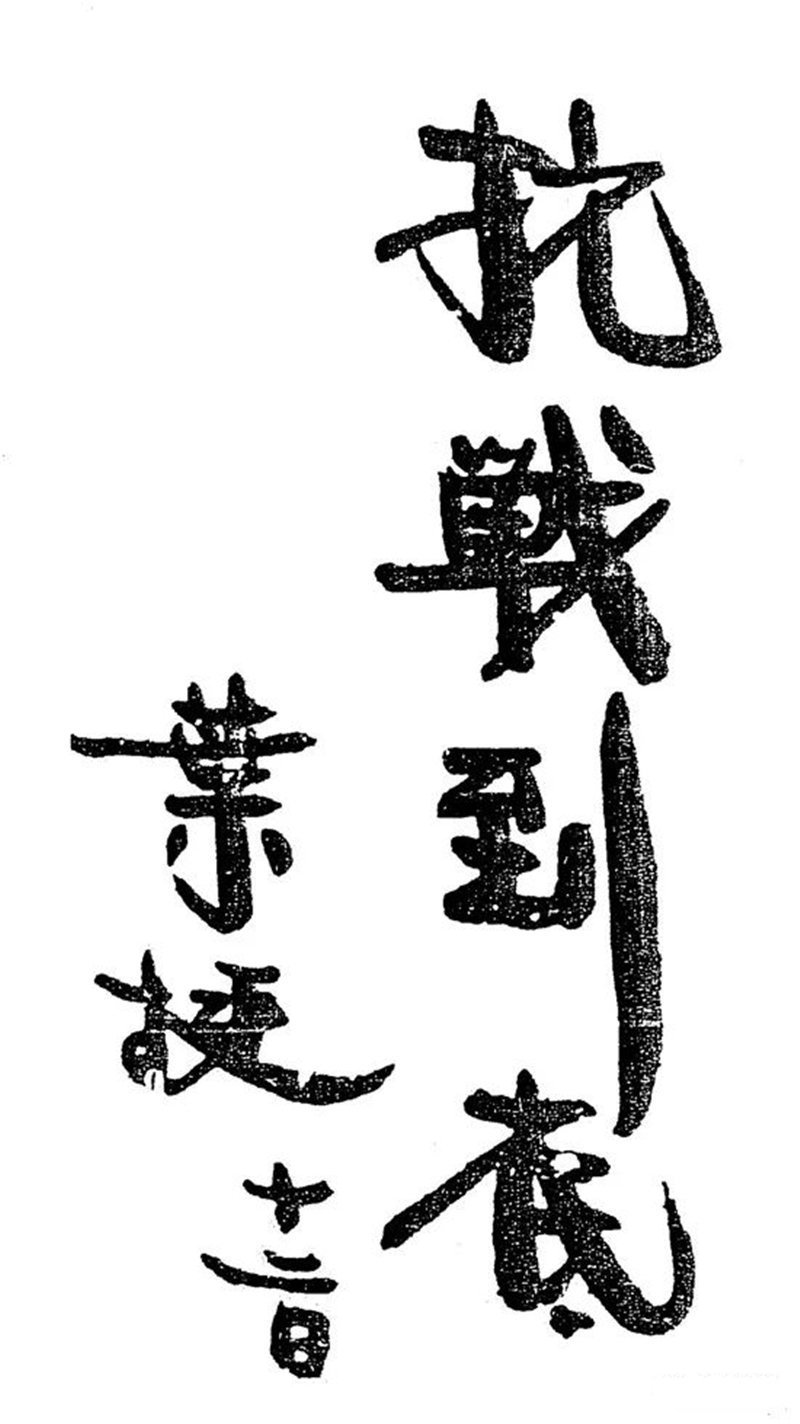 抗戰到底
葉挺 十二日